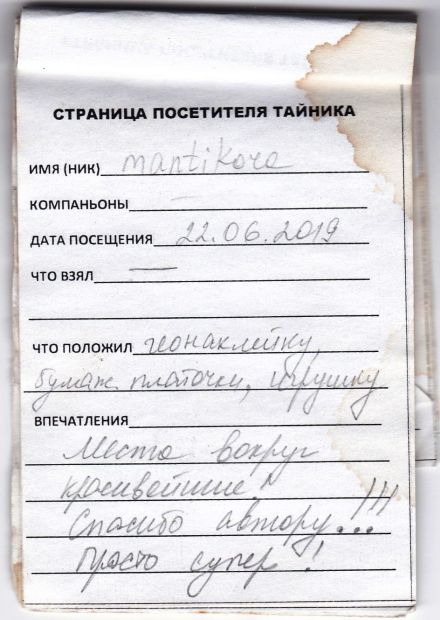 СТРАНИЦА ПОСЕТИТЕЛЯ ТАЙНИКА
ИМЯ (НИК) mantikora
КОМПАНЬОНЫ —
ДАТА ПОСЕЩЕНИЯ 22.06.2019
ЧТО ВЗЯЛ —
ЧТО ПОЛОЖИЛ геонаклейку,
бумаж. платочки, игрушку
ВПЕЧАТЛЕНИЯ
Места вокруг
красивейшие!
Спасибо автору...!!!
Просто супер!